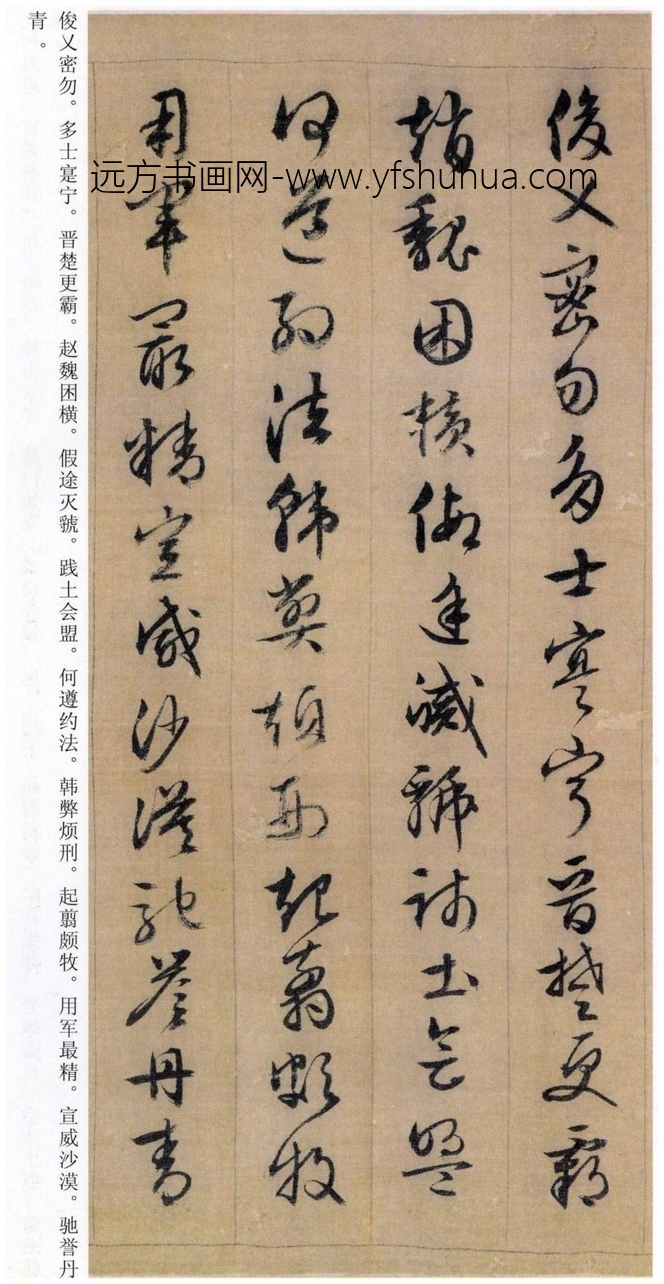 俊乂密勿多士寔宁晋楚更霸
趙魏困横假途滅虢踐土会盟
何遵約法韓弊煩刑起翦頗牧
用軍最精宣威沙漠馳誉丹青
远方书画网-www.yfshuhua.com
俊乂密勿。多士寔宁。晋楚更霸。赵魏困横。假途灭虢。践土会盟。何遵约法。韩弊烦刑。起翦颇牧。用军最精。宣威沙漠。驰誉丹
青。